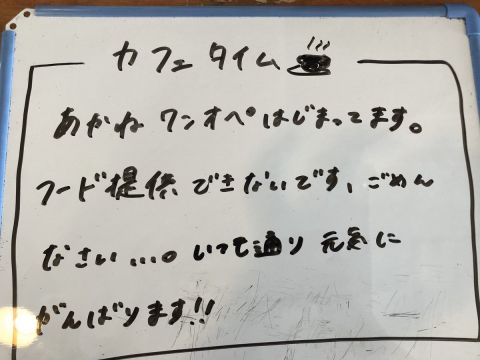 カフェタイム
あかね ワンオペはじまってます。
フード提供できないです、ごめん
なさい...。いつも通り元気に
がんばります!!